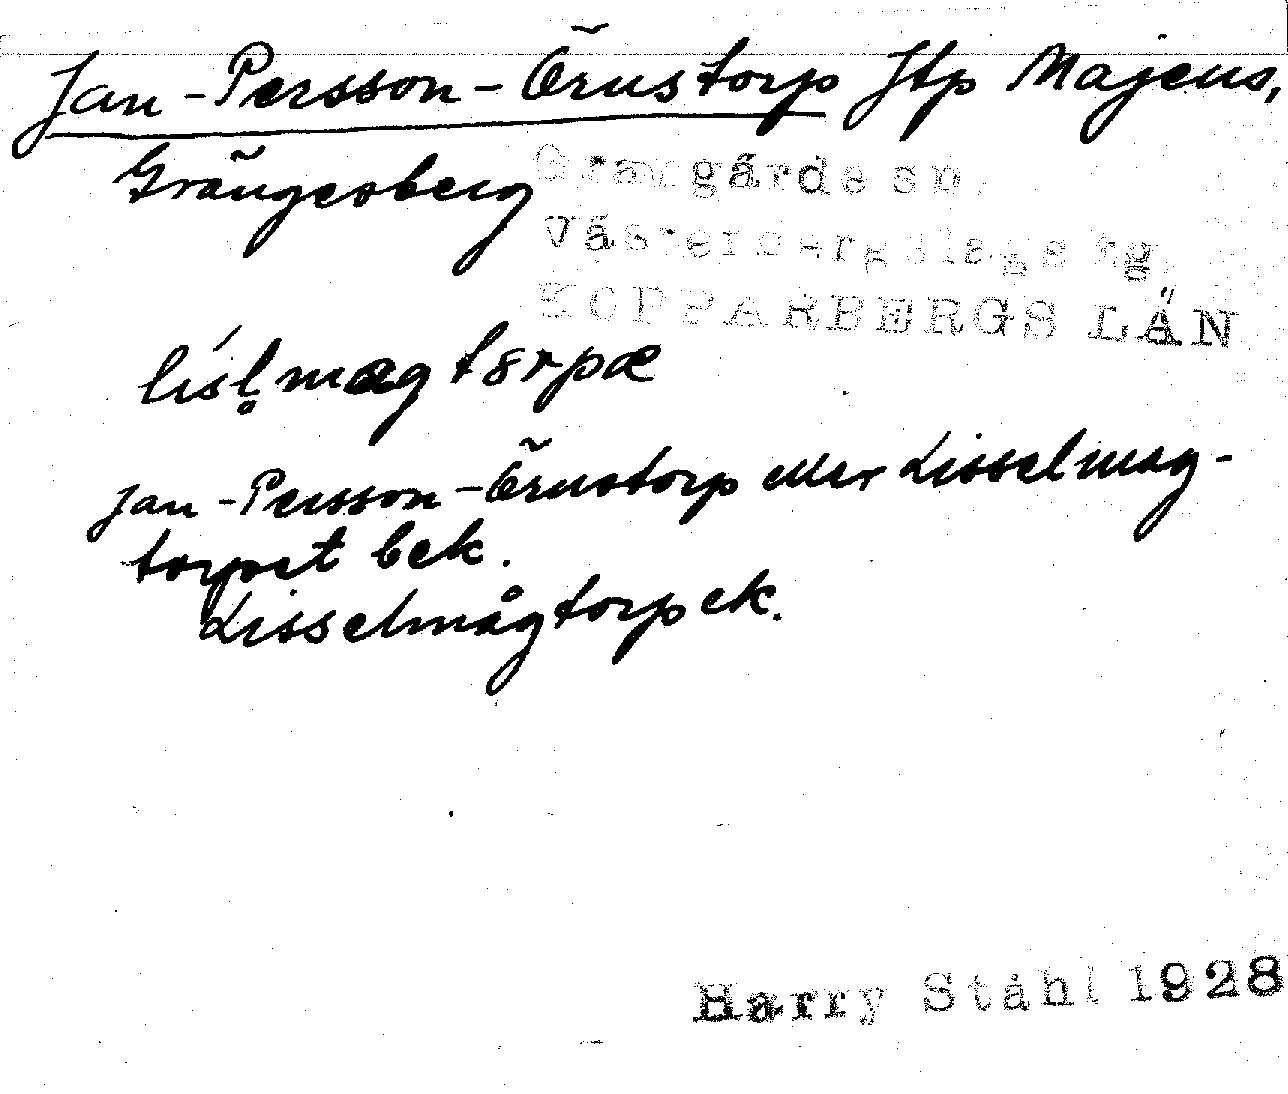 Jan-Persson-Örnstorp Jtp Majens,
Grängesberg
Grangärde sn.
Västerbergslags tg.
KOPPARBERGS LÄN
lísl̥mag tɔrpæ
Jan-Persson-Örnstorp eller Lisselmag-
torpet bek.
Lisselmågtorp ek.
Harry Ståhl 1928